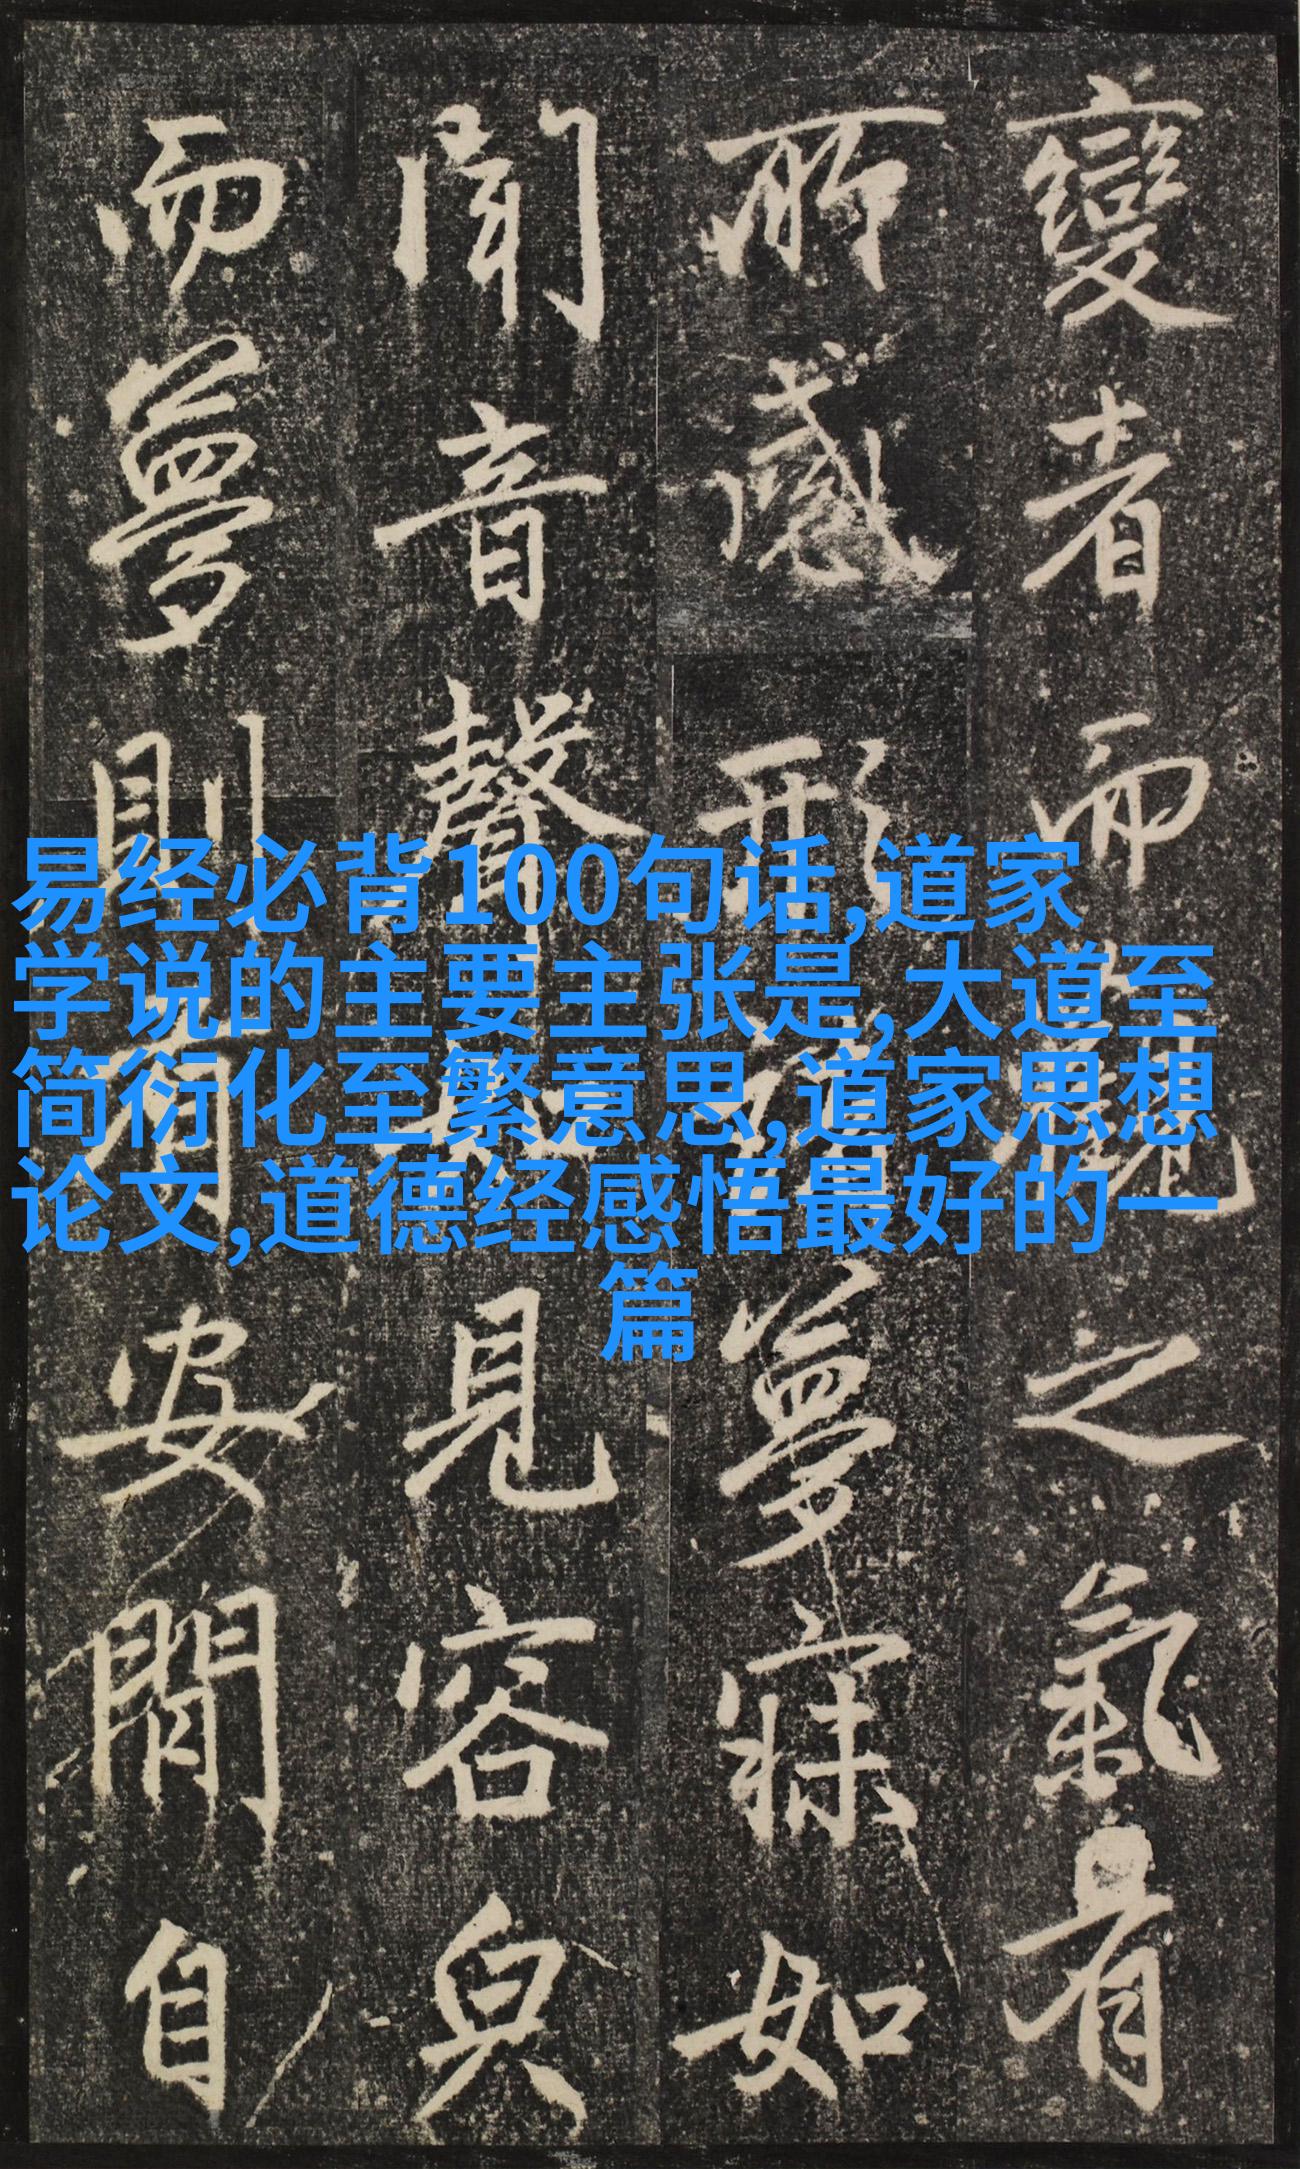 變者而觀之氣有
所感形夢寐如
聞音聲如見容皃
而夢則有安閒自
易经必背100句话,道家
学说的主要主张是,大道至
简衍化至繁意思,道家思想
论文,道德经感悟最好的一
篇